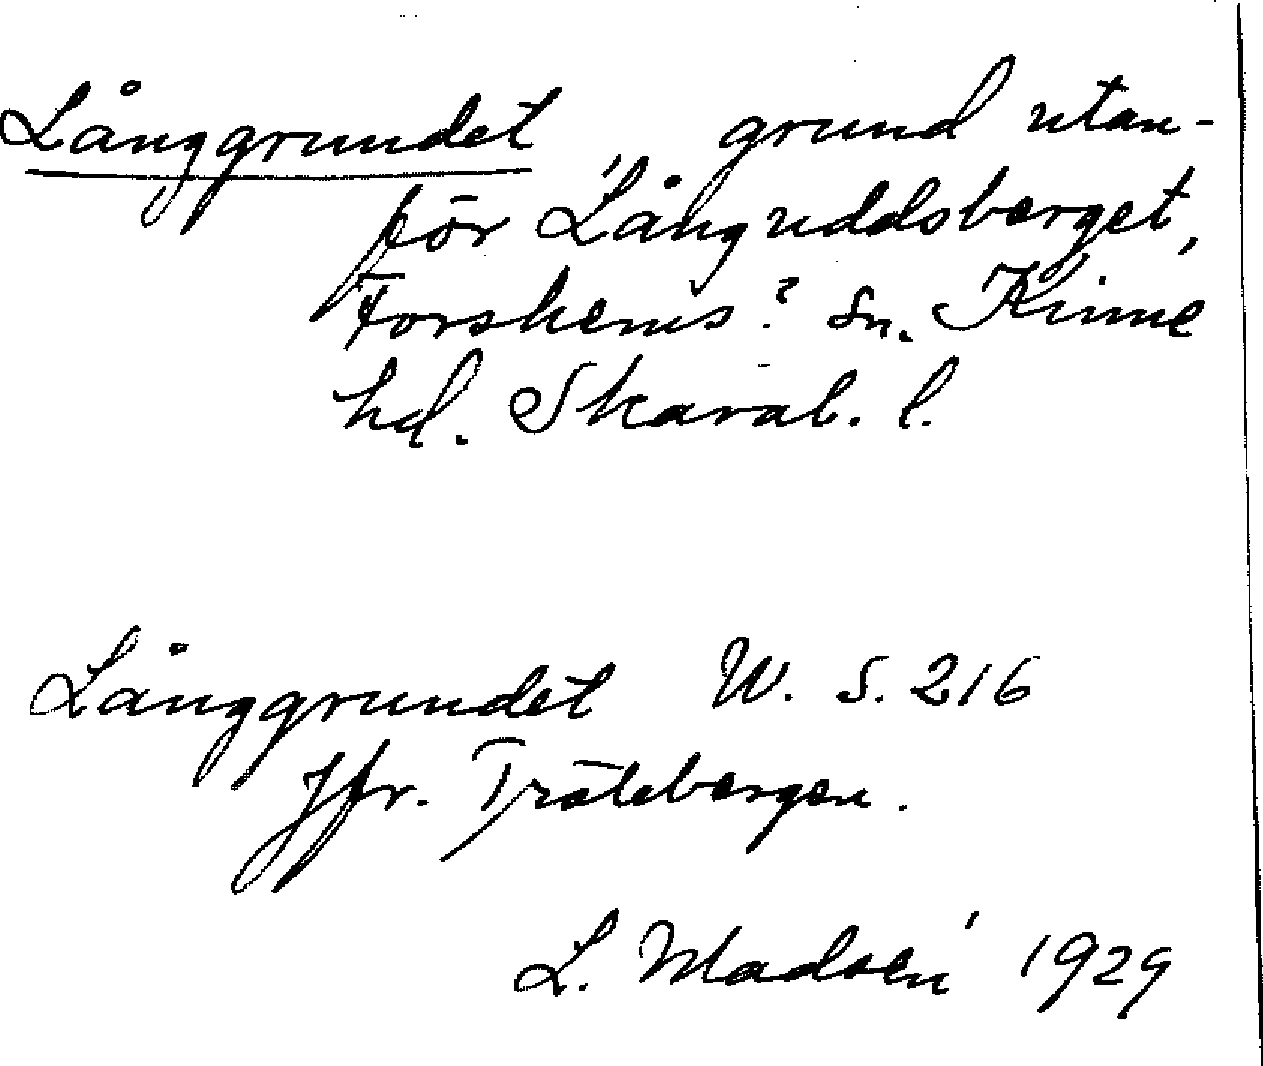 Långgrundet grund utan-
för Långuddsberget,
Forshems? sn. Kinne
hd. Skarab. l.
Långgrundet W. S. 216
Jfr. Trätebergen.
L. Madsén 1929